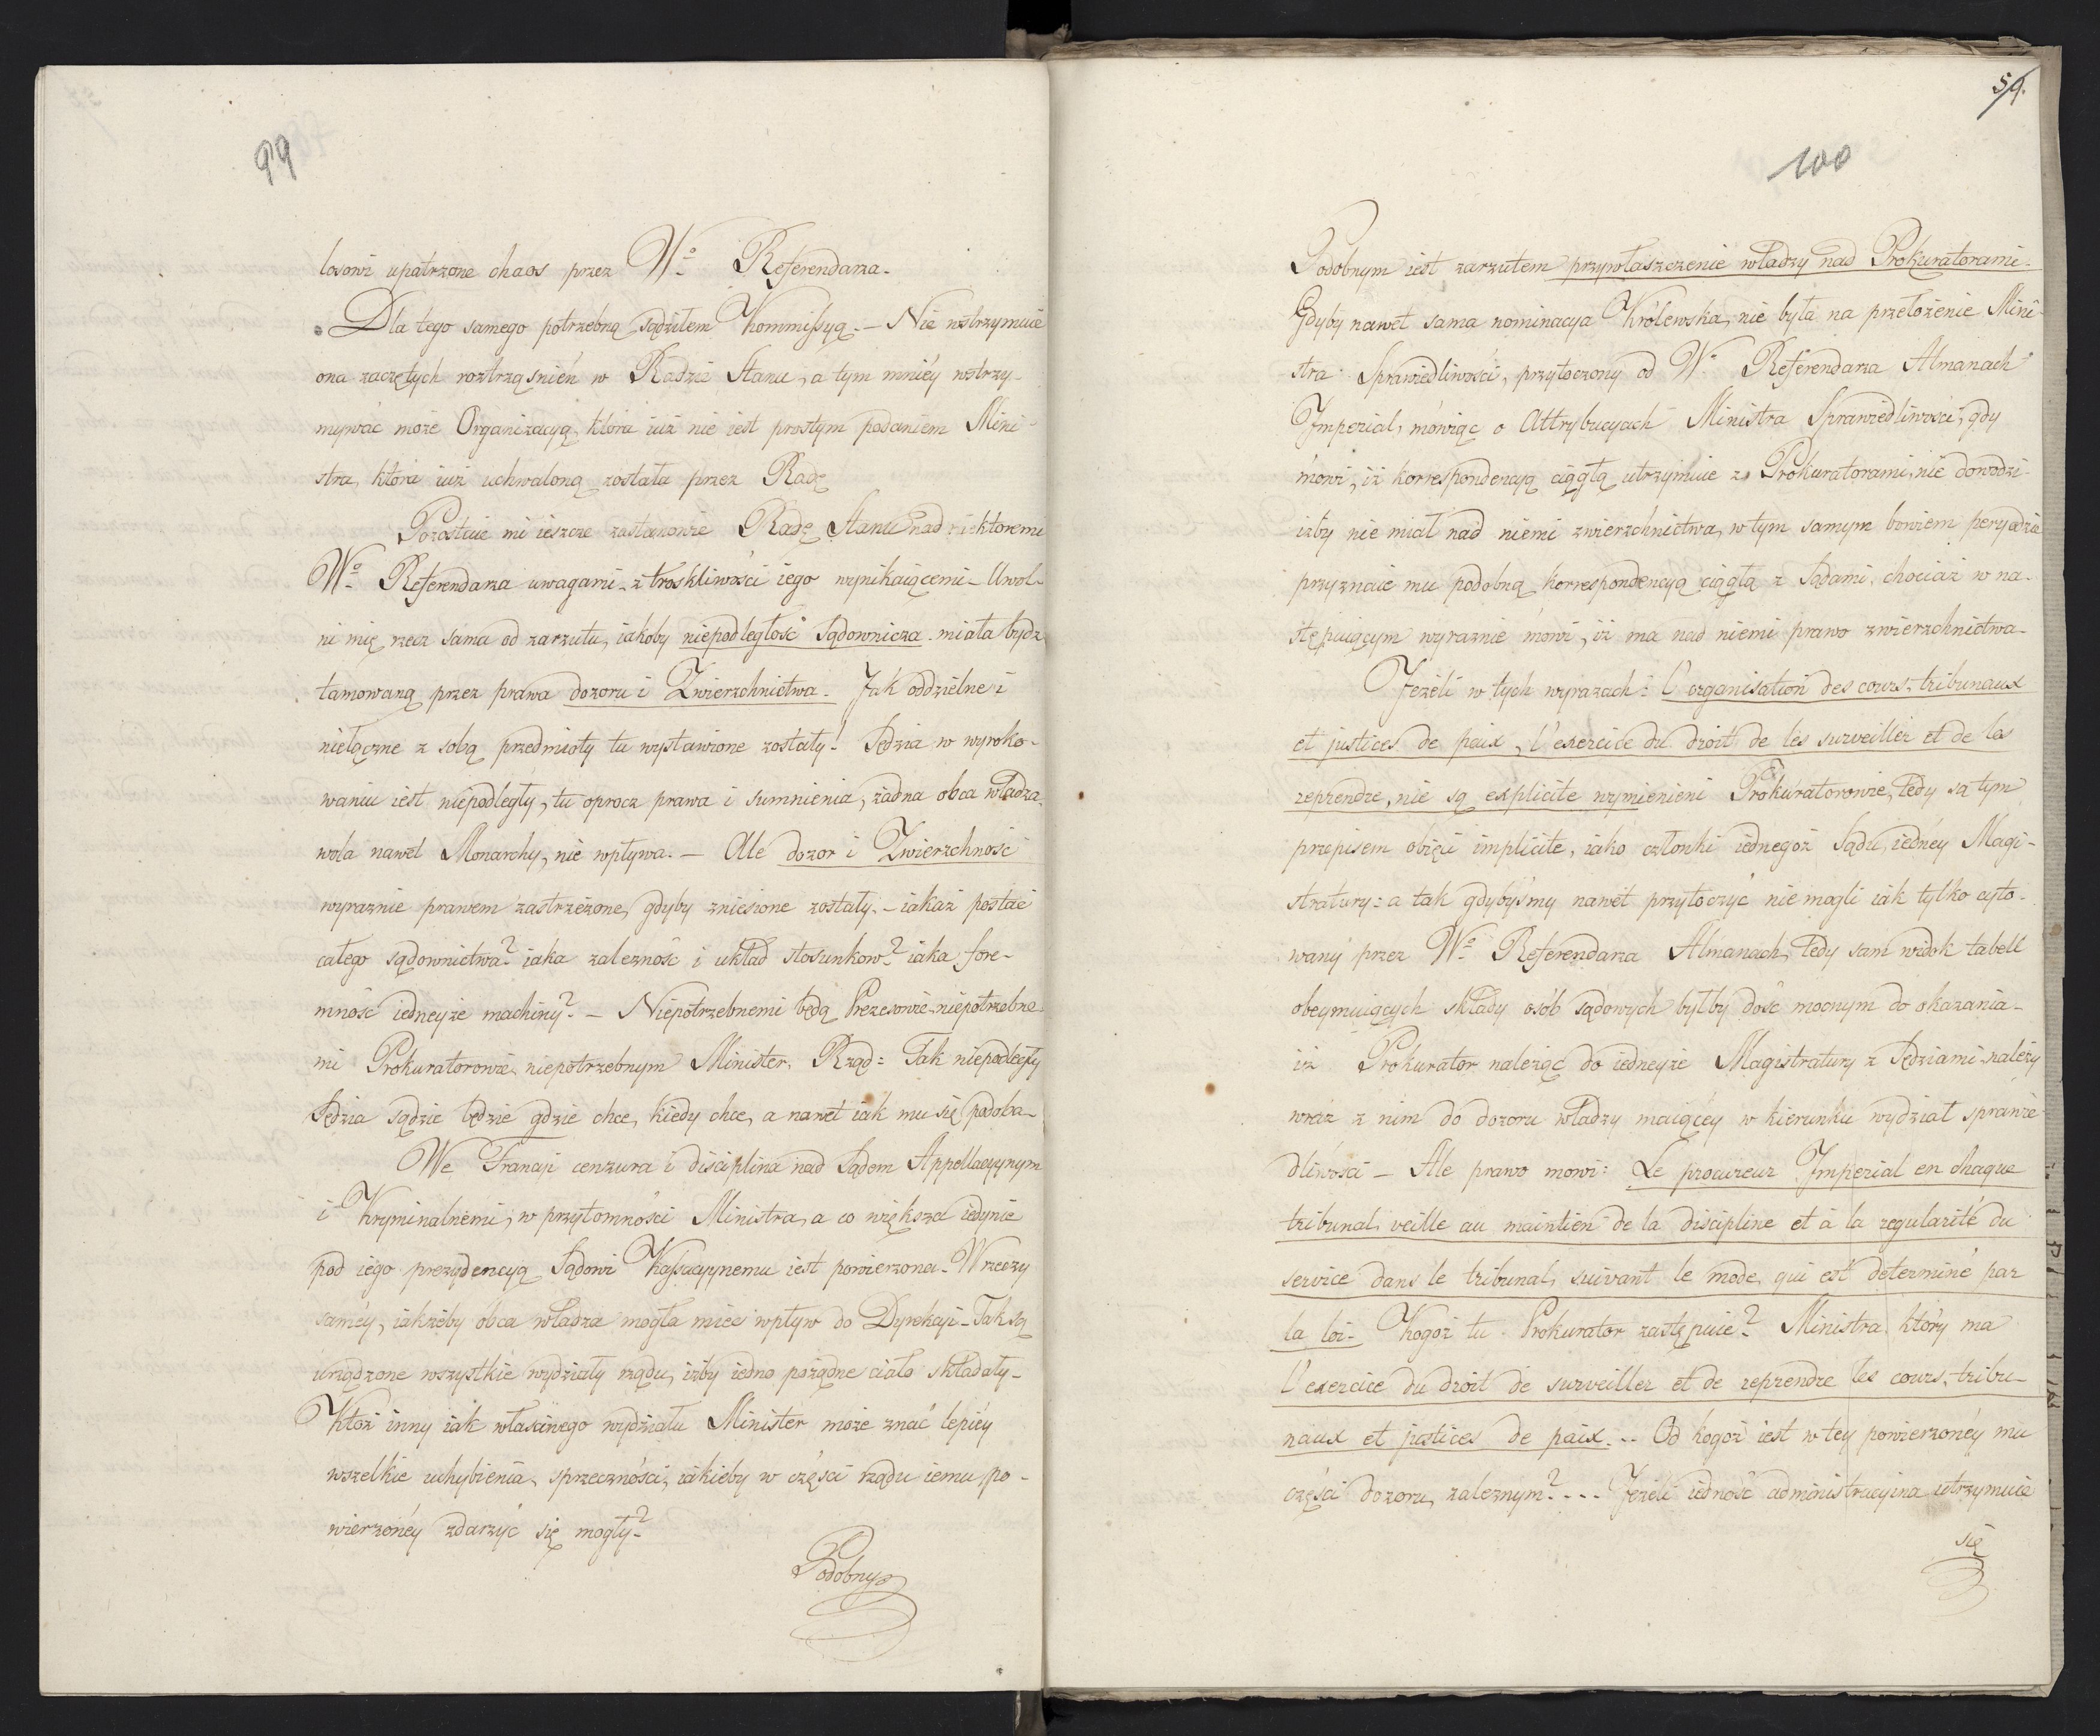 99
losowi upatrzone chaos przez Wo Referendarza.
Dla tego samego potrzebną sądziłem Kommissyą. — Nie wstrzymuie
ona zaczętych roztrząsnień w Radzie Stanu, a tym mniéy wstrzy-
mywać może Organizacyą, która iuż nie iest prostym podaniem Mini-
stra, która iuż uchwaloną została przez Radę
Pozostaie mi ieszcze zastanowić Radę Stanu nad niektoremi
Wo Referendarza uwagami z troskliwości iego wynikaiącemi. Uwol-
ni mię rzecz sama od zarzutu, iakoby niepodległość Sądownicza miała bydz
tamowaną przez prawa dozoru i Zwierzchnictwa. Jak oddzielne i
niełączne z sobą przedmioty tu wystawione zostały! Sędzia w wyroko-
waniu iest niepodległy, tu oprocz prawa i sumnienia, żadna obca władza,
wola nawet Monarchy, nie wpływa. — Ale dozor i Zwierzchność
wyraznie prawem zastrzeżone, gdyby zniesione zostały. — iakaż postać
całego sądownictwa? iaka zależność i układ stosunkow? iaka fore-
mność iedneyże machiny? — Niepotrzebnemi będą Prezesowie, niepotrzebne-
mi Prokuratorowie, niepotrzebnym Minister, Rząd: Tak niepodległy
Sędzia sądzić będzie gdzie chce, kiedy chce, a nawet iak mu się podoba.
We Francji cenzura i disciplina nad Sądem Appellacyynym
i Kryminalnemi, w przytomności Ministra, a co większa iedynie
pod iego prezydencyą Sądowi Kassacyynemu iest powierzona. W rzeczy
saméy, iakżeby obca władza mogła mieć wpływ do Dyrekcji. Tak są
urządzone wszystkie wydziały rządu, iżby iedno porządne ciało składały.
Któż inny iak właściwego wydziału Minister może znać lepiéy
wszelkie uchybienia, sprzeczności, iakieby w części rządu iemu po-
wierzonéy zdarzyć się mogły?
Podobnym
59.
100
Podobnym iest zarzutem przywłaszczenie władzy nad Prokuratorami.
Gdyby nawet sama nominacya Królewska, nie była na przełożenie Mini-
stra Sprawiedliwości, przytoczony od Wo Referendarza Almanach
Imperial, mówiąc o Attrybucyach Ministra Sprawiedliwości, gdy
mówi, iż korrespondencyą ciągłą utrzymuie z Prokuratorami, nie dowodzi
iżby nie miał nad niemi zwierzchnictwa, w tym samym bowiem peryodzie
przyznaie mu podobną korrespondencyą ciągłą z Sądami, chociaż w na-
stępuiącym wyraznie mówi, iż ma nad niemi prawo zwierzchnictwa.
Jeżeli w tych wyrazach: l'organisation des cours, tribunaux
et justices de paix, l'exercice du droit de les surveiller et de les
reprendre, nie są explicite wymienieni Prokuratorowie, tedy są tym
przepisem obięci implicite, iako członki iednegoż Sądu, iednéy Magi-
stratury: a tak gdybyśmy nawet przytoczyć nie mogli iak tylko cyto-
wany przez Wo Referendarza Almanach, tedy sam widok tabell
obeymuiących składy osób sądowych byłby dość mocnym do okazania
iż Prokurator należąc do iedneyże Magistratury z Sędziami, należy
wraz z nim do dozoru władzy maiącéy w kierunku wydział sprawie-
dliwości — Ale prawo mowi: Le procureur Imperial en chaque
tribunal, veille au maintien de la discipline et à la regularité du
service dans le tribunal, suivant le mode, qui est determiné par
la loi. Kogoż tu Prokurator zastępuie? Ministra, który ma
l'exercice du droit de surveiller et de reprendre les cours, tribu-
naux et justices de paix... Od kogoż iest w tey powierzonéy mu
części dozoru, zależnym?.... Jeżeli iedność administracyina utrzymuie
się